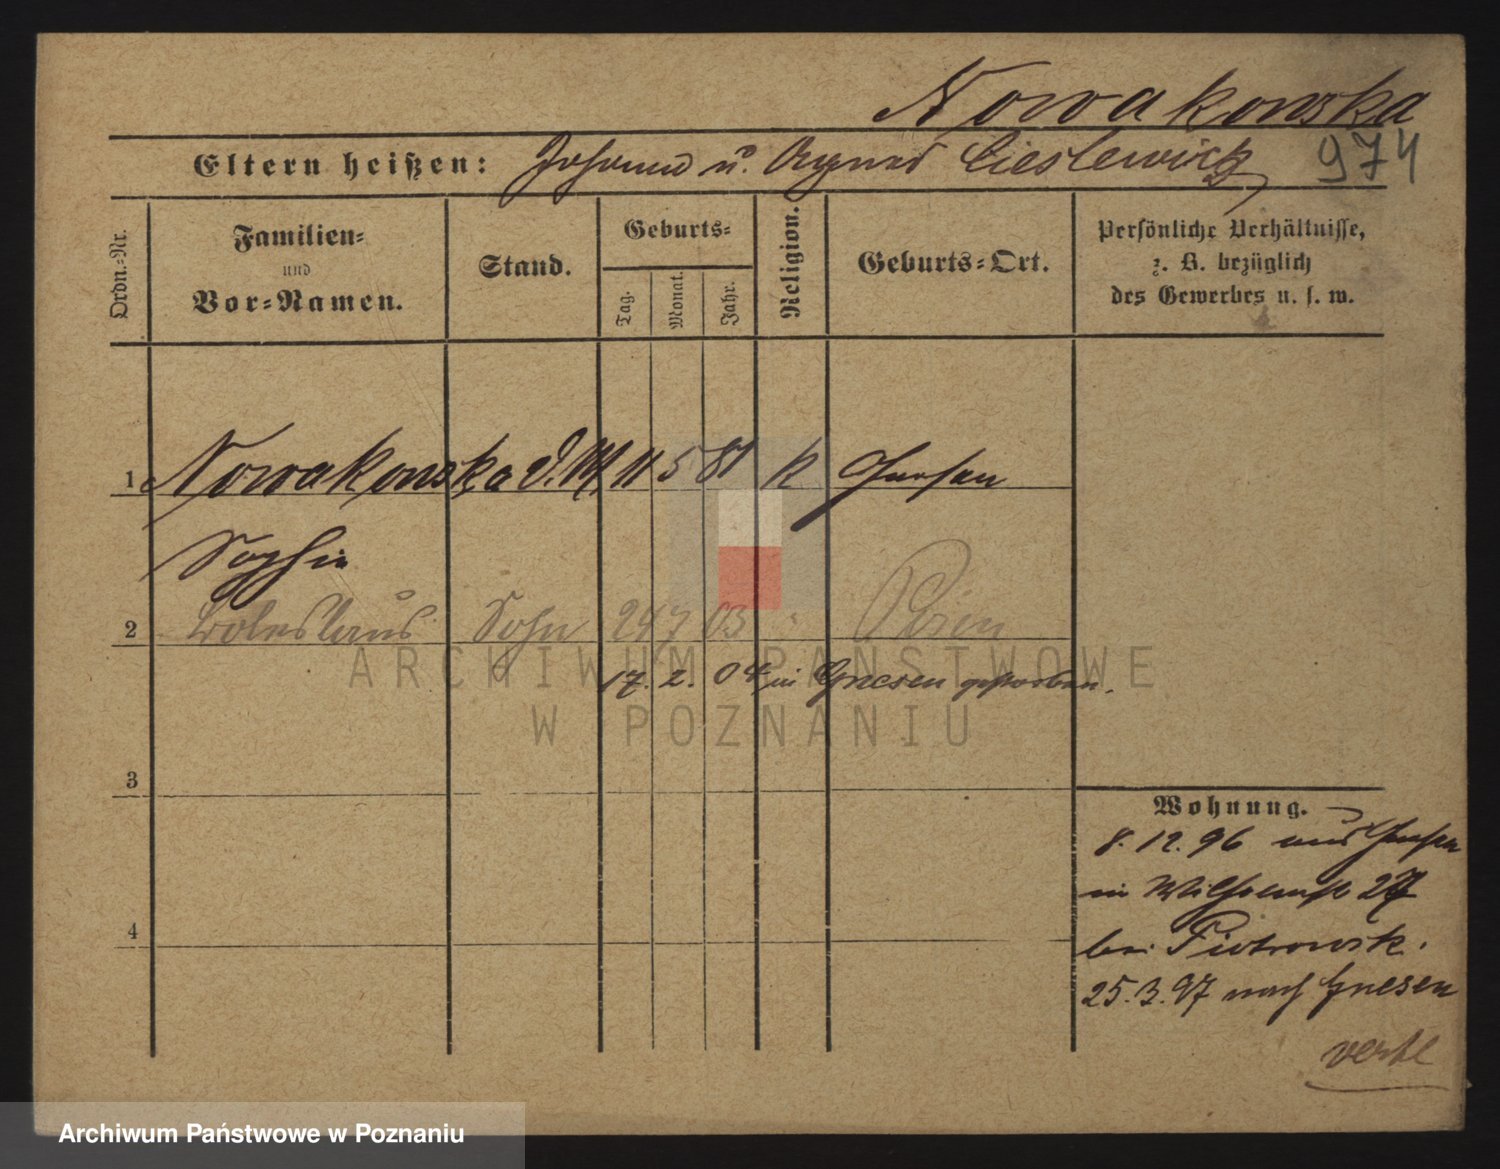 Nowakowska
Eltern heißen: Johann u. Agnes Cieslewicz 974
Ordn.-Nr.
Familien-
und
Vor-Namen.
Stand.
Geburts-
Tag.
Monat.
Jahr.
Religion.
Geburts-Ort.
Persönliche Verhältnisse,
z. B. bezüglich
des Gewerbes u. s. w.
1 Nowakowska D.M. 11 5 81 k Gnesen
Sophie
2 Boleslaus Sohn 24 7 03 " Posen
17. 2. 04 in Gnesen gestorben.
3
4
Wohnung.
8. 12. 96 aus Gnesen
in Wilhelmst 27
bei Piotrowsk.
25. 3. 97 nach Gnesen
verte
ARCHIWUM PAŃSTWOWE
W POZNANIU
Archiwum Państwowe w Poznaniu